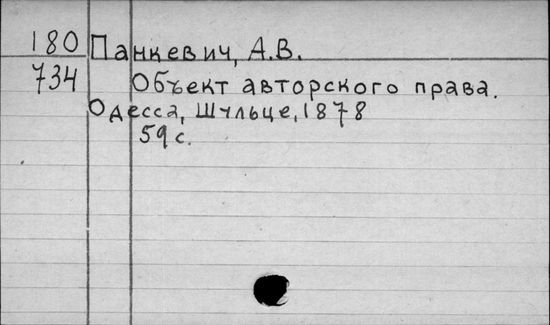 180 Панкевич, А.В.
734 Объект авторского права.
Одесса, Шульце, 1878
59 с.